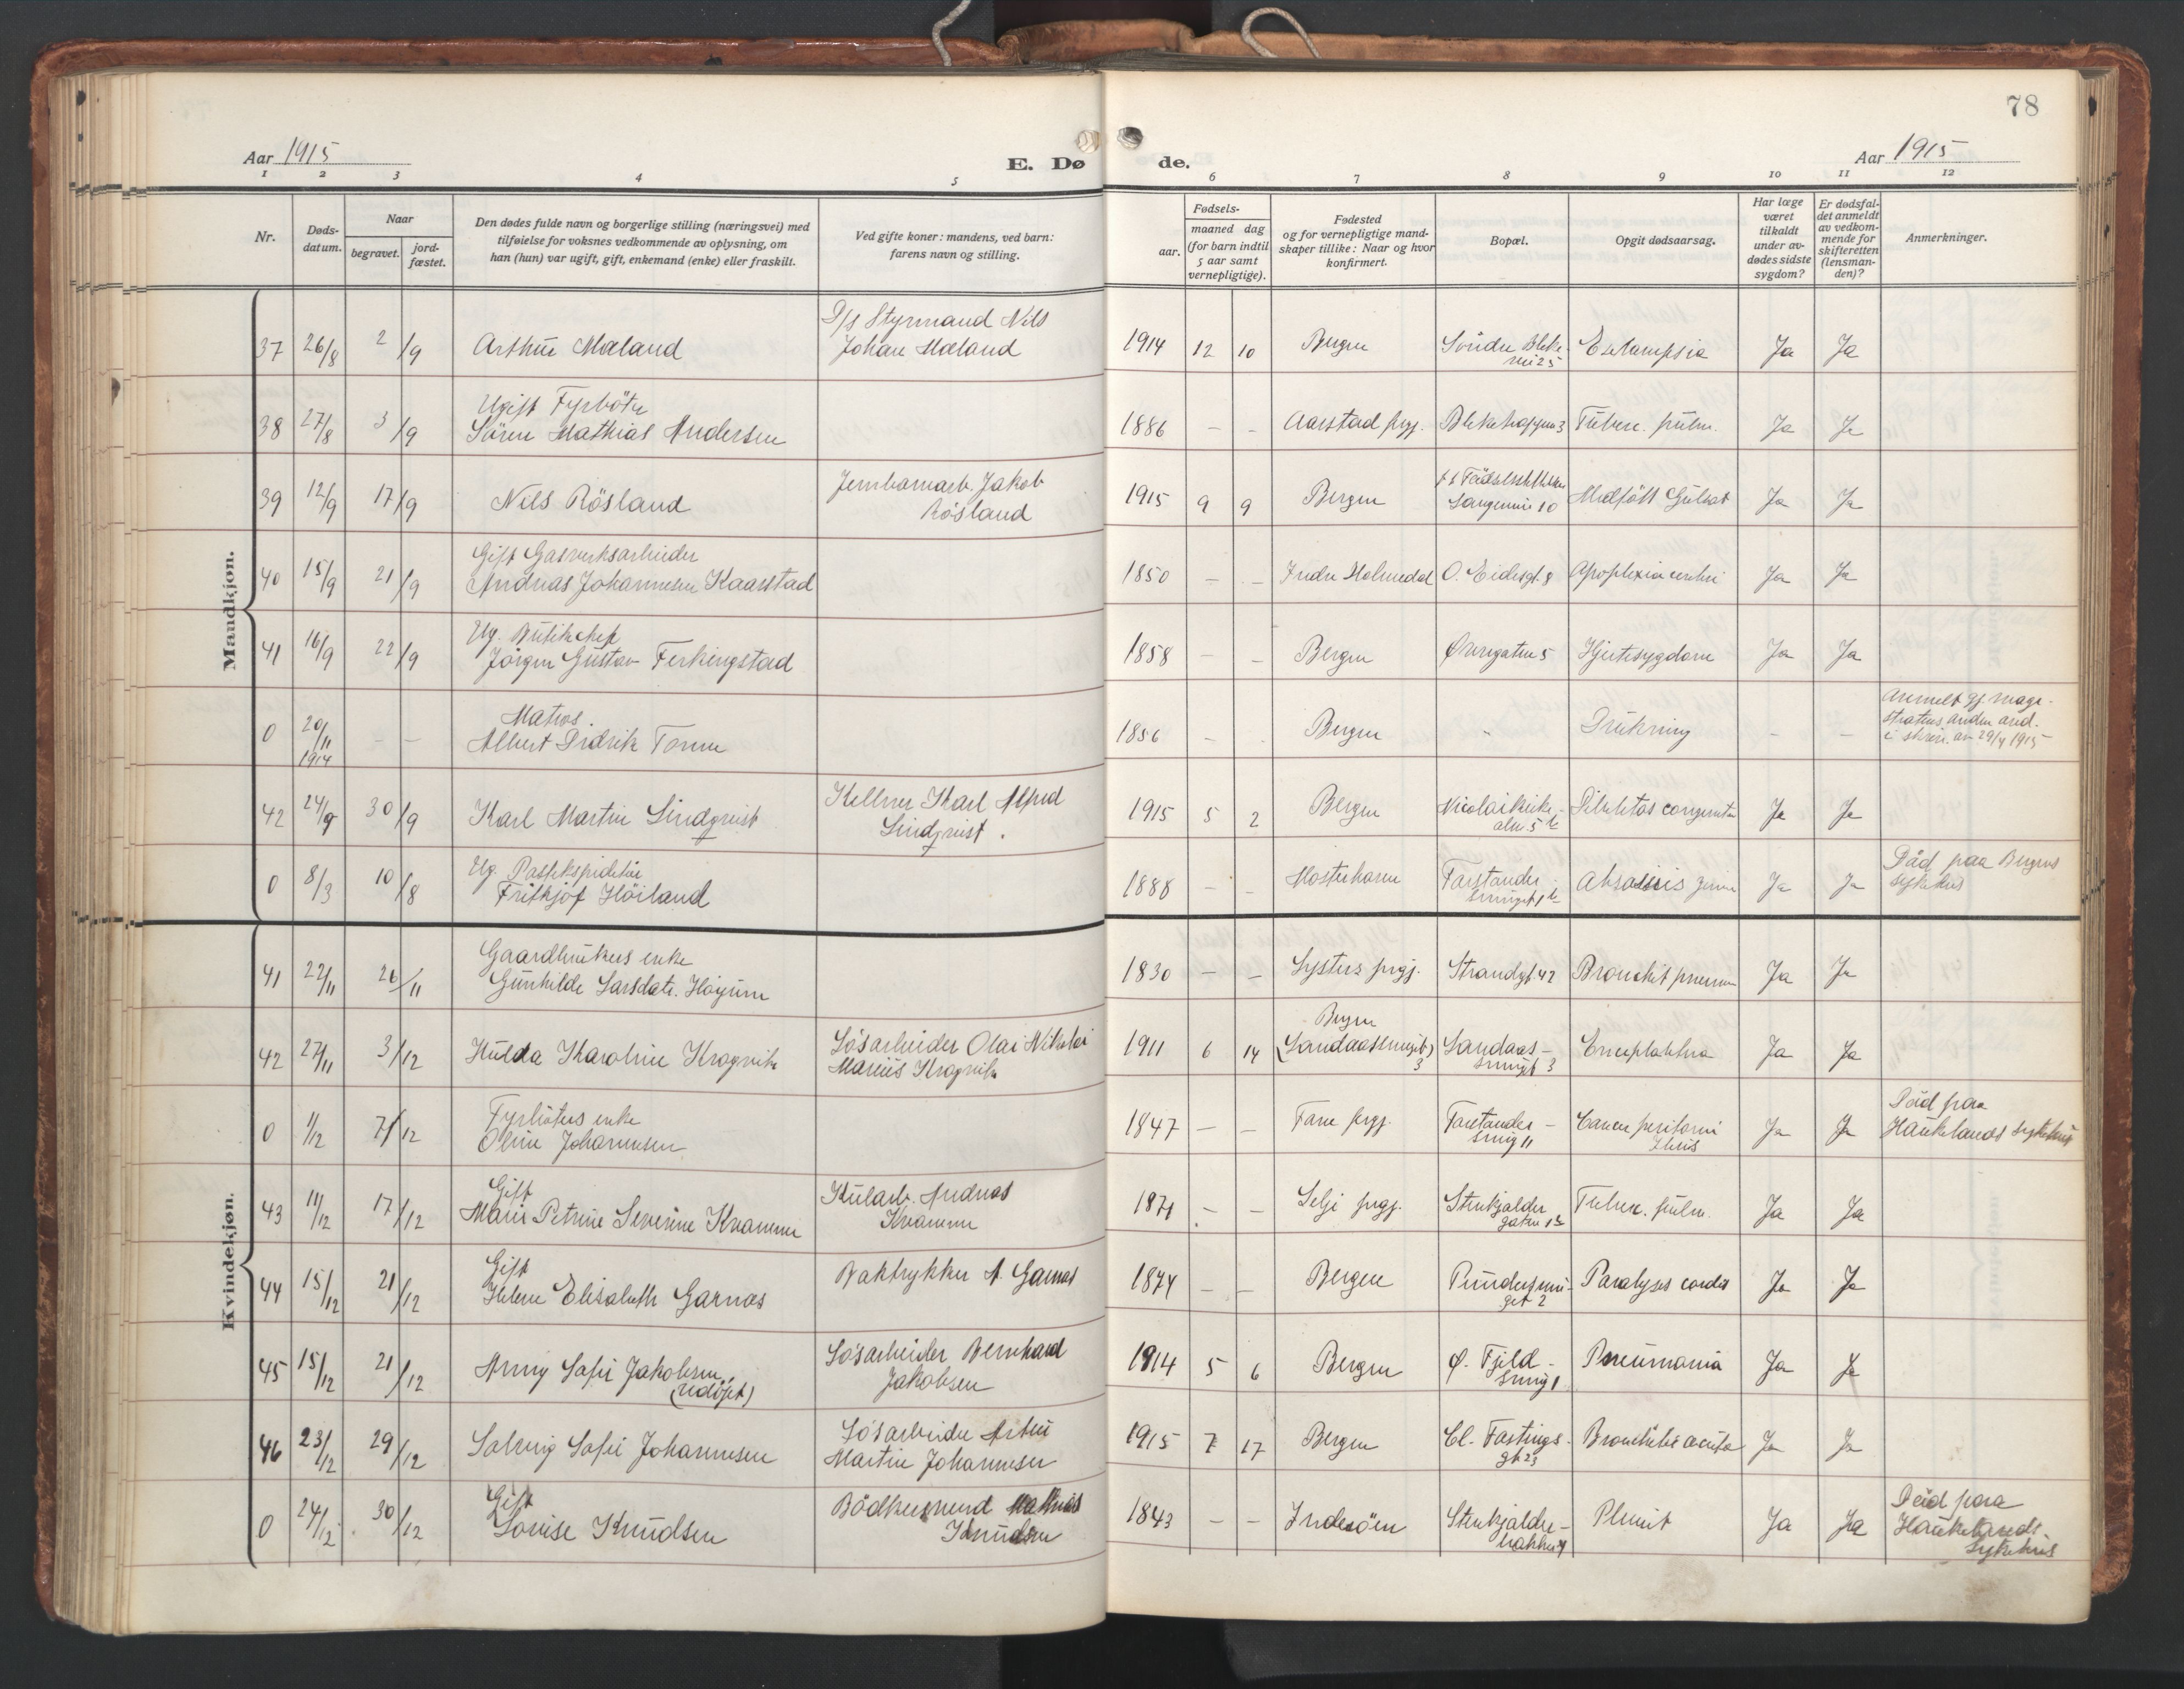 78
Aar 1915
E. Dø
de.
Aar 1915
1 2 3 4 5 6 7 8 9 10 11 12
Nr.
Døds-
datum.
Naar
begravet.
jord-
fæstet.
Den dødes fulde navn og borgerlige stilling (næringsvei) med
tilføielse for voksnes vedkommende av oplysning, om
han (hun) var ugift, gift, enkemand (enke) eller fraskilt.
Ved gifte koner: mandens, ved barn:
farens navn og stilling.
Fødsels-
aar.
maaned dag
(for barn indtil
5 aar samt
vernepligtige).
Fødested
og for vernepligtige mand-
skaper tillike: Naar og hvor
konfirmert.
Bopæl.
Opgit dødsaarsag.
Har læge
været
tilkaldt
under av-
dødes sidste
sygdom?
Er dødsfal-
det anmeldt
av vedkom-
mende for
skifteretten
(lensman-
den)?
Anmerkninger.
Mandkjøn.
D/s Styrmand Nils
37 26/8 2/9 Arthur Mæland Johan Mæland 1914 12 10 Bergen Søndre Bleke-
vei 25 Eclampsia Ja Ja
Ugift Fyrbøter
38 27/8 3/9 Sören Mathias Andersen 1886 - - Aarstad prgj. 3 Tuberc. pulm. Ja Ja
39 12/9 17/9 Nils Rösland Jernbanearb. Jakob
Rösland 1915 9 9 Bergen 10 Medfött Ja Ja
Gift Gasverksarbeider
40 15/9 21/9 Andreas Johannesen Kaarstad 1850 - - Indre Holmedal O. Eidesgt. 8 Apoplexia cerebri Ja Ja
Ug. Butikchef
41 16/9 22/9 Jörgen Gustav Ferkingstad 1858 - - Bergen Øvregaten 5 Hjertesygdom Ja Ja
Matros.
0 20/11 1914 - - Albert Didrik 1856 - - Bergen - Drukning - - Anmeldt gj. magi-
stratens anden avd.
i skriv. av 29/4 1915
42 24/9 30/9 Karl Martin Lindqvist Kellner Karl Alfred
Lindqvist. 1915 5 2 Bergen Nicolaikirke-
alm. 5 b Debilitas congenita Ja Ja
Ug. Postekspeditör
0 8/3 10/8 Fritkjöf Höiland 1888 - - Mosterhavn Forstander-
smuget 1 b Ja Ja Död paa Bergens
sykehus
Kvindekjøn.
Gaardbrukers enke
41 22/11 26/11 Gunhilde Larsdatr. 1830 - - Lysters prgj. Strandgt 42 Bronchit pneum Ja Ja
42 27/11 3/12 Hulda Karoline Krogvik Løsarbeider Olai Nikolai
Marius Krogvik 1911 6 14 Bergen
(Landaassmuget)
3 Landaas-
smuget 3 Ja Ja
Fyrbøters enke
0 1/12 7/12 Oline Johannesen 1847 - - Fane prgj. Forstander-
smug 11 Cancer peritonei
Ileus Ja Ja Död paa
Haukelands sykehus
Gift
43 11/12 17/12 Marie Petrine Severine Kvamme Kularb. Andreas
Kvamme 1871 - - Selje prgj. Stenkjelder
gaten 1 b Tuberc. pulm. Ja Ja
Gift
44 15/12 21/12 Helene Elisabeth Garnæs Boktrykker A. Garnæs 1874 - - Bergen Pundersmu-
get 2 Paralysis cordis Ja Ja
45 15/12 21/12 Anny Sofie Jakobsen
(udöpt) Løsarbeider Bernhard
Jakobsen 1914 5 6 Bergen Ø. Fjeld-
smug 1 Pneumonia Ja Ja
46 23/12 29/12 Solveig Sofie Johannesen Løsarbeider
Martin Johannesen 1915 7 17 Bergen Cl. Fastings-
gt 23 Bronchitis acuta Ja Ja
Gift
0 24/12 30/12 Lovise Knudsen Bödkersvend Mathias
Knudsen 1843 - - Inderöen Stenkjelder-
bakken Ja Ja Död paa
Haukelands-
sykehus